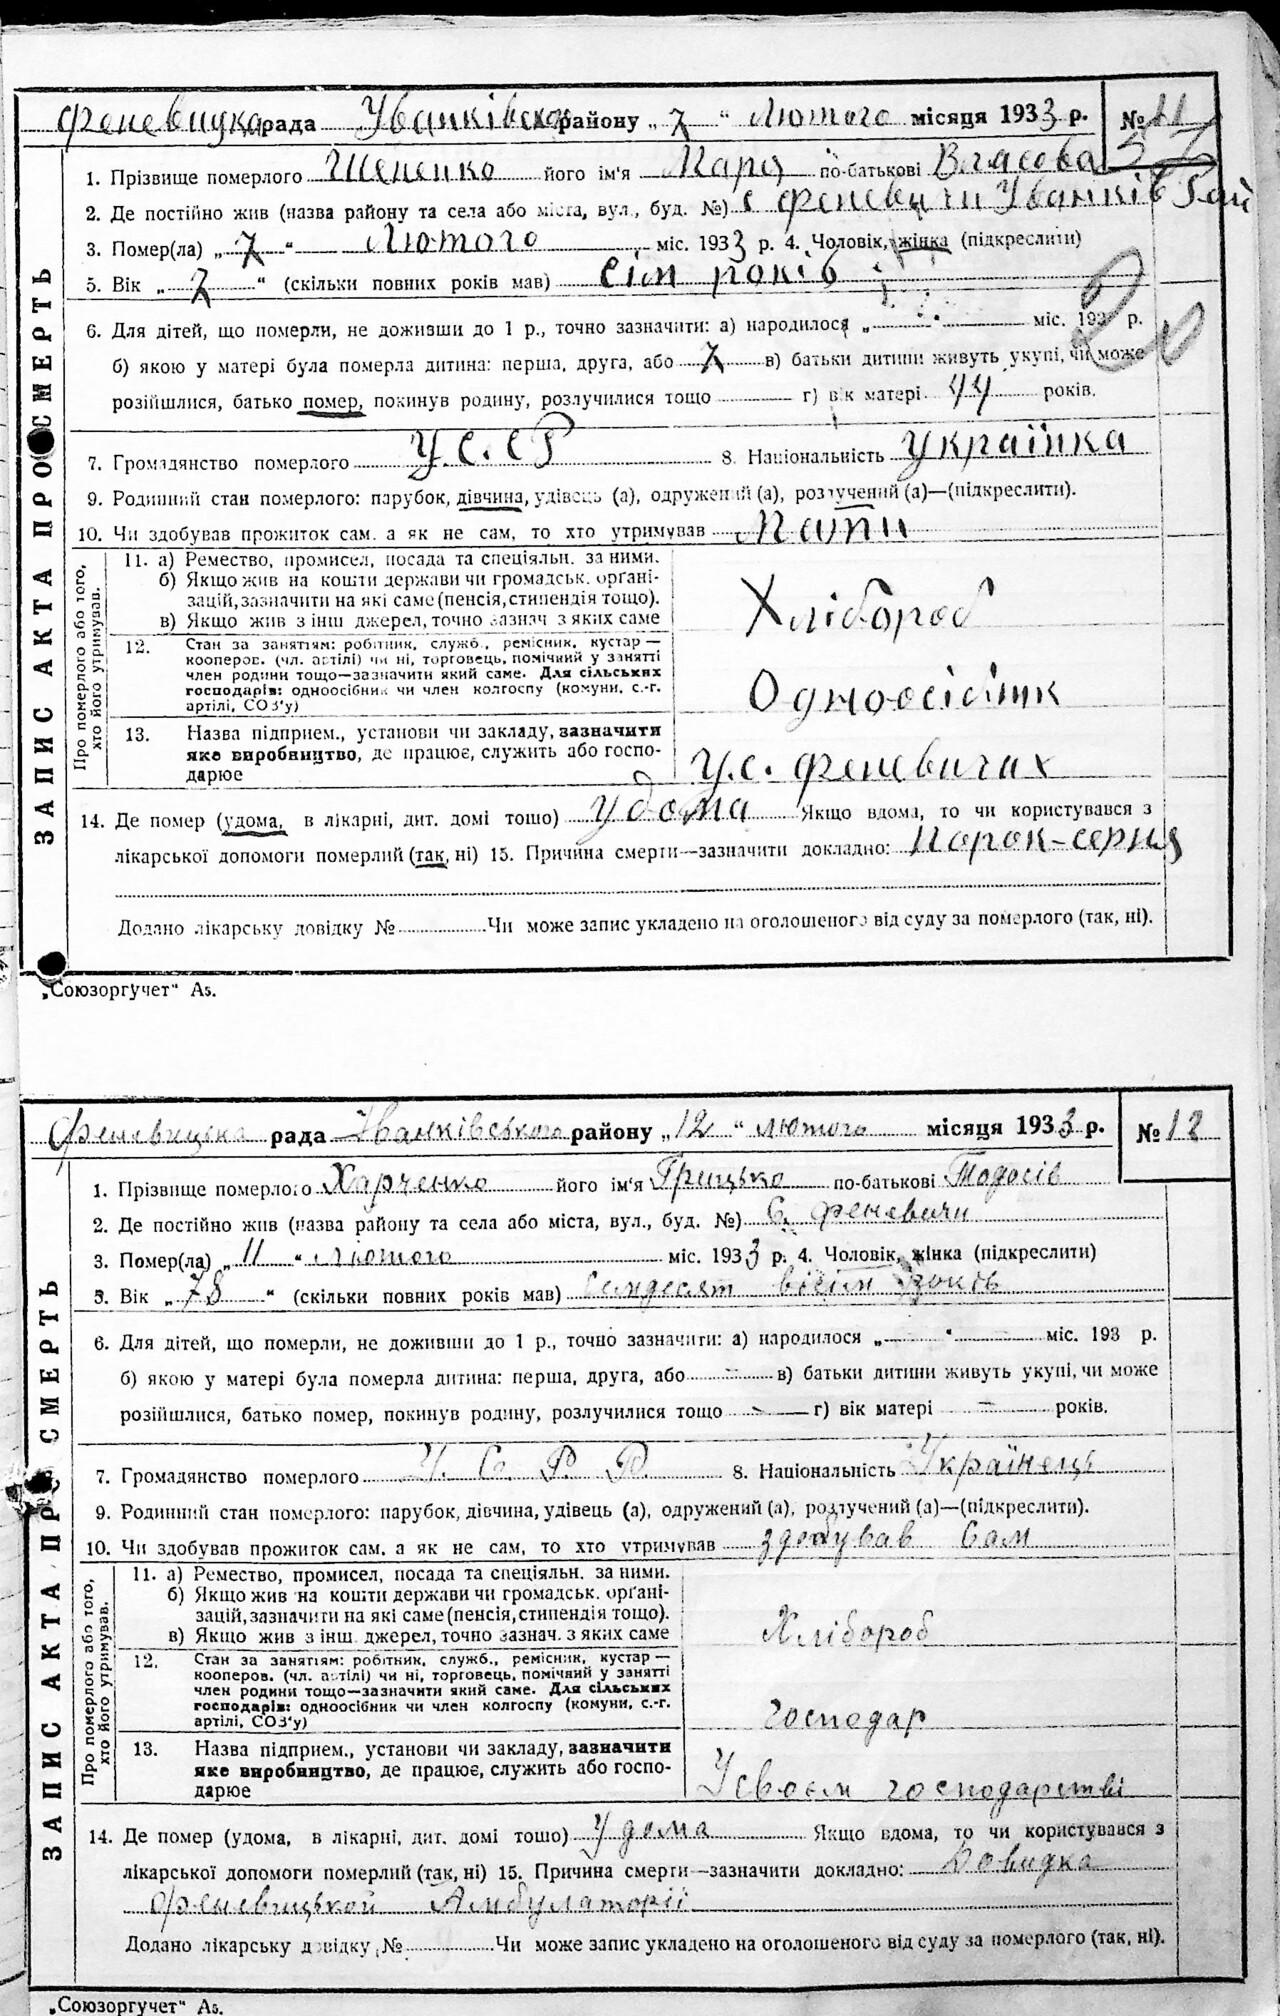 Феневицка рада Уванківськ району „7“ Лютого місяця 1933 р. № 11
57
1. Прізвище померлого Шененко його ім'я Мария по-батькові Власова
2. Де постійно жив (назва району та села або міста, вул., буд. №) с Феневичи Уванків Рай
3. Помер(ла) „7“ Лютого міс. 1933 р. 4. Чоловік, жінка (підкреслити)
5. Вік „7“ (скільки повних років мав) сім років
6. Для дітей, що померли, не доживши до 1 р., точно зазначити: а) народилося „ “ міс. 193 р.
б) якою у матері була померла дитина: перша, друга, або 7 в) батьки дитини живуть укупі, чи може
розійшлися, батько помер, покинув родину, розлучилися тощо г) вік матері 44 років.
7. Громадянство померлого У.С.СР 8. Національність українка
9. Родинний стан померлого: парубок, дівчина, удівець (а), одружений (а), розлучений (а)—(підкреслити).
10. Чи здобував прожиток сам, а як не сам, то хто утримував Мати
ЗАПИС АКТА ПРО СМЕРТЬ
Про померлого або того, хто його утримував.
11. а) Ремество, промисел, посада та спеціяльн. за ними.
б) Якщо жив на кошти держави чи громадськ. органі-
зацій, зазначити на які саме (пенсія, стипендія тощо).
в) Якщо жив з інш джерел, точно зазнач з яких саме
Хлібороб
12. Стан за заняттям: робітник, служб., ремісник, кустар —
кооперов. (чл. артілі) чи ні, торговець, помічний у занятті
член родини тощо—зазначити який саме. Для сільських
господарів: одноосібник чи член колгоспу (комуни, с.-г.
артілі, СОЗ'у)
Одноосібник
13. Назва підприєм., установи чи закладу, зазначити
яке виробництво, де працює, служить або госпо-
дарює
У.с. Феневичах
14. Де помер (удома, в лікарні, дит. домі тошо) удома Якщо вдома, то чи користувався з
лікарської допомоги померлий (так, ні) 15. Причина смерти—зазначити докладно: Порок-серця
Додано лікарську довідку № Чи може запис укладено на оголошеного від суду за померлого (так, ні).
„Союзоргучет“ А5.
Феневицька рада Іванківського району „12“ лютого місяця 1933 р. № 12
1. Прізвище померлого Харченко його ім'я Грицько по-батькові Тодосів
2. Де постійно жив (назва району та села або міста, вул., буд. №) С. Феневичи
3. Помер(ла) „11“ лютого міс. 1933 р. 4. Чоловік, жінка (підкреслити)
5. Вік „78“ (скільки повних років мав) Семдесят вісім років
6. Для дітей, що померли, не доживши до 1 р., точно зазначити: а) народилося „ “ міс. 193 р.
б) якою у матері була померла дитина: перша, друга, або — в) батьки дитини живуть укупі, чи може
розійшлися, батько помер, покинув родину, розлучилися тощо — г) вік матері — років.
7. Громадянство померлого У. С. Р. Р. 8. Національність Українець
9. Родинний стан померлого: парубок, дівчина, удівець (а), одружений (а), розлучений (а)—(підкреслити).
10. Чи здобував прожиток сам, а як не сам, то хто утримував здобував Сам
ЗАПИС АКТА ПРО СМЕРТЬ
Про померлого або того, хто його утримував.
11. а) Ремество, промисел, посада та спеціяльн. за ними.
б) Якщо жив на кошти держави чи громадськ. органі-
зацій, зазначити на які саме (пенсія, стипендія тощо).
в) Якщо жив з інш джерел, точно зазнач. з яких саме
Хлібороб
12. Стан за заняттям: робітник, служб., ремісник, кустар —
кооперов. (чл. артілі) чи ні, торговець, помічний у занятті
член родини тощо—зазначити який саме. Для сільських
господарів: одноосібник чи член колгоспу (комуни, с.-г.
артілі, СОЗ'у)
господар
13. Назва підприєм., установи чи закладу, зазначити
яке виробництво, де працює, служить або госпо-
дарює
У своєм господарстві
14. Де помер (удома, в лікарні, дит. домі тошо) У дома Якщо вдома, то чи користувався з
лікарської допомоги померлий (так, ні) 15. Причина смерти—зазначити докладно: Довидка
Феневицької Амбулаторії
Додано лікарську довідку № Чи може запис укладено на оголошеного від суду за померлого (так, ні).
„Союзоргучет“ А5.